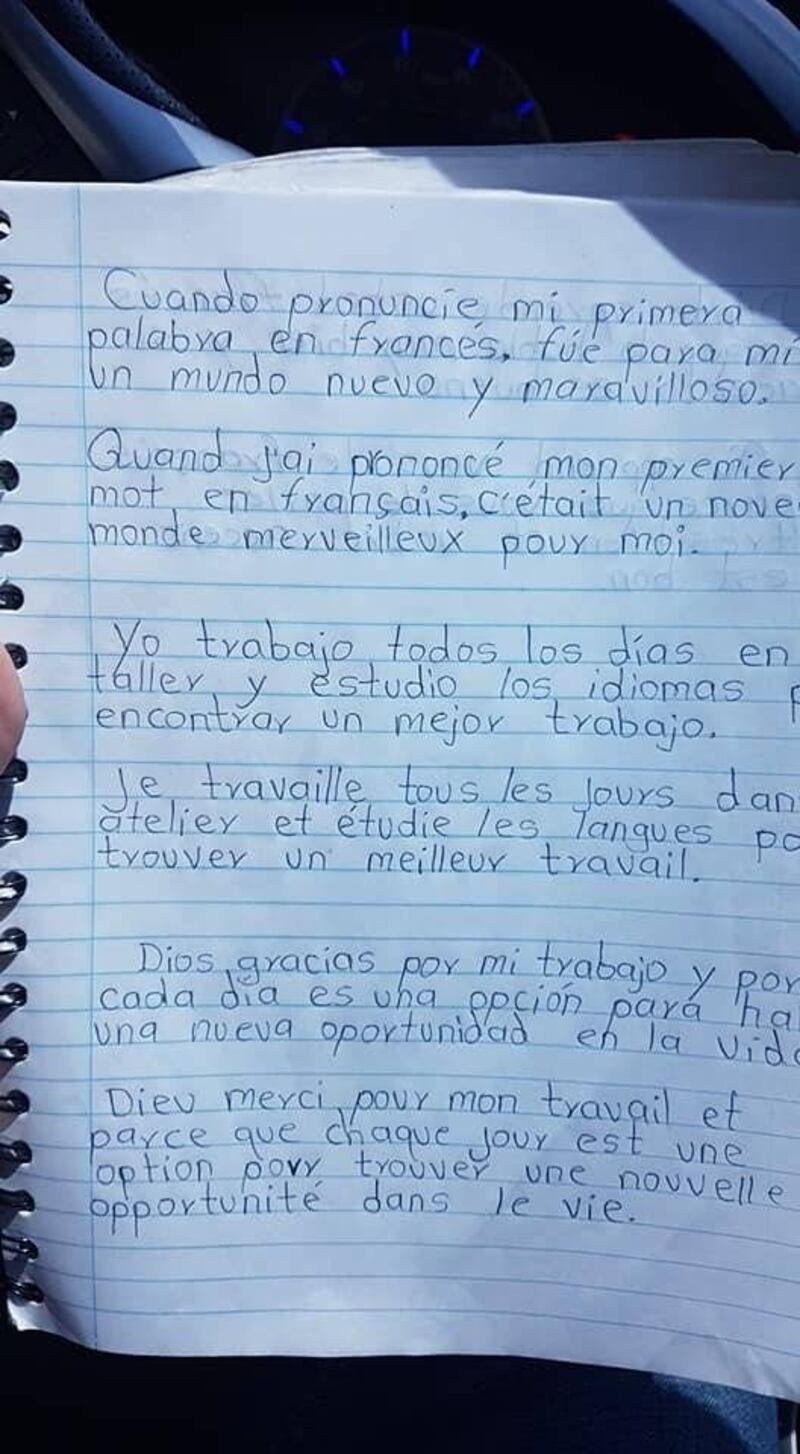 Cuando pronuncie mi primera
palabra en francés, fúe para mí
un mundo nuevo y maravilloso.
Quand j'ai prononcé mon premier
mot en français, c'était un nove
monde merveilleux pour moi.
Yo trabajo todos los días en
taller y estudio los idiomas p
encontrar un mejor trabajo.
Je travaille tous les jours dan
atelier et étudie les langues po
trouver un meilleur travail.
Dios gracias por mi trabajo y por
cada día es una opción para ha
una nueva oportunidad en la vida
Dieu merci pour mon travail et
parce que chaque jour est une
option pour trouver une nouvelle
opportunité dans le vie.